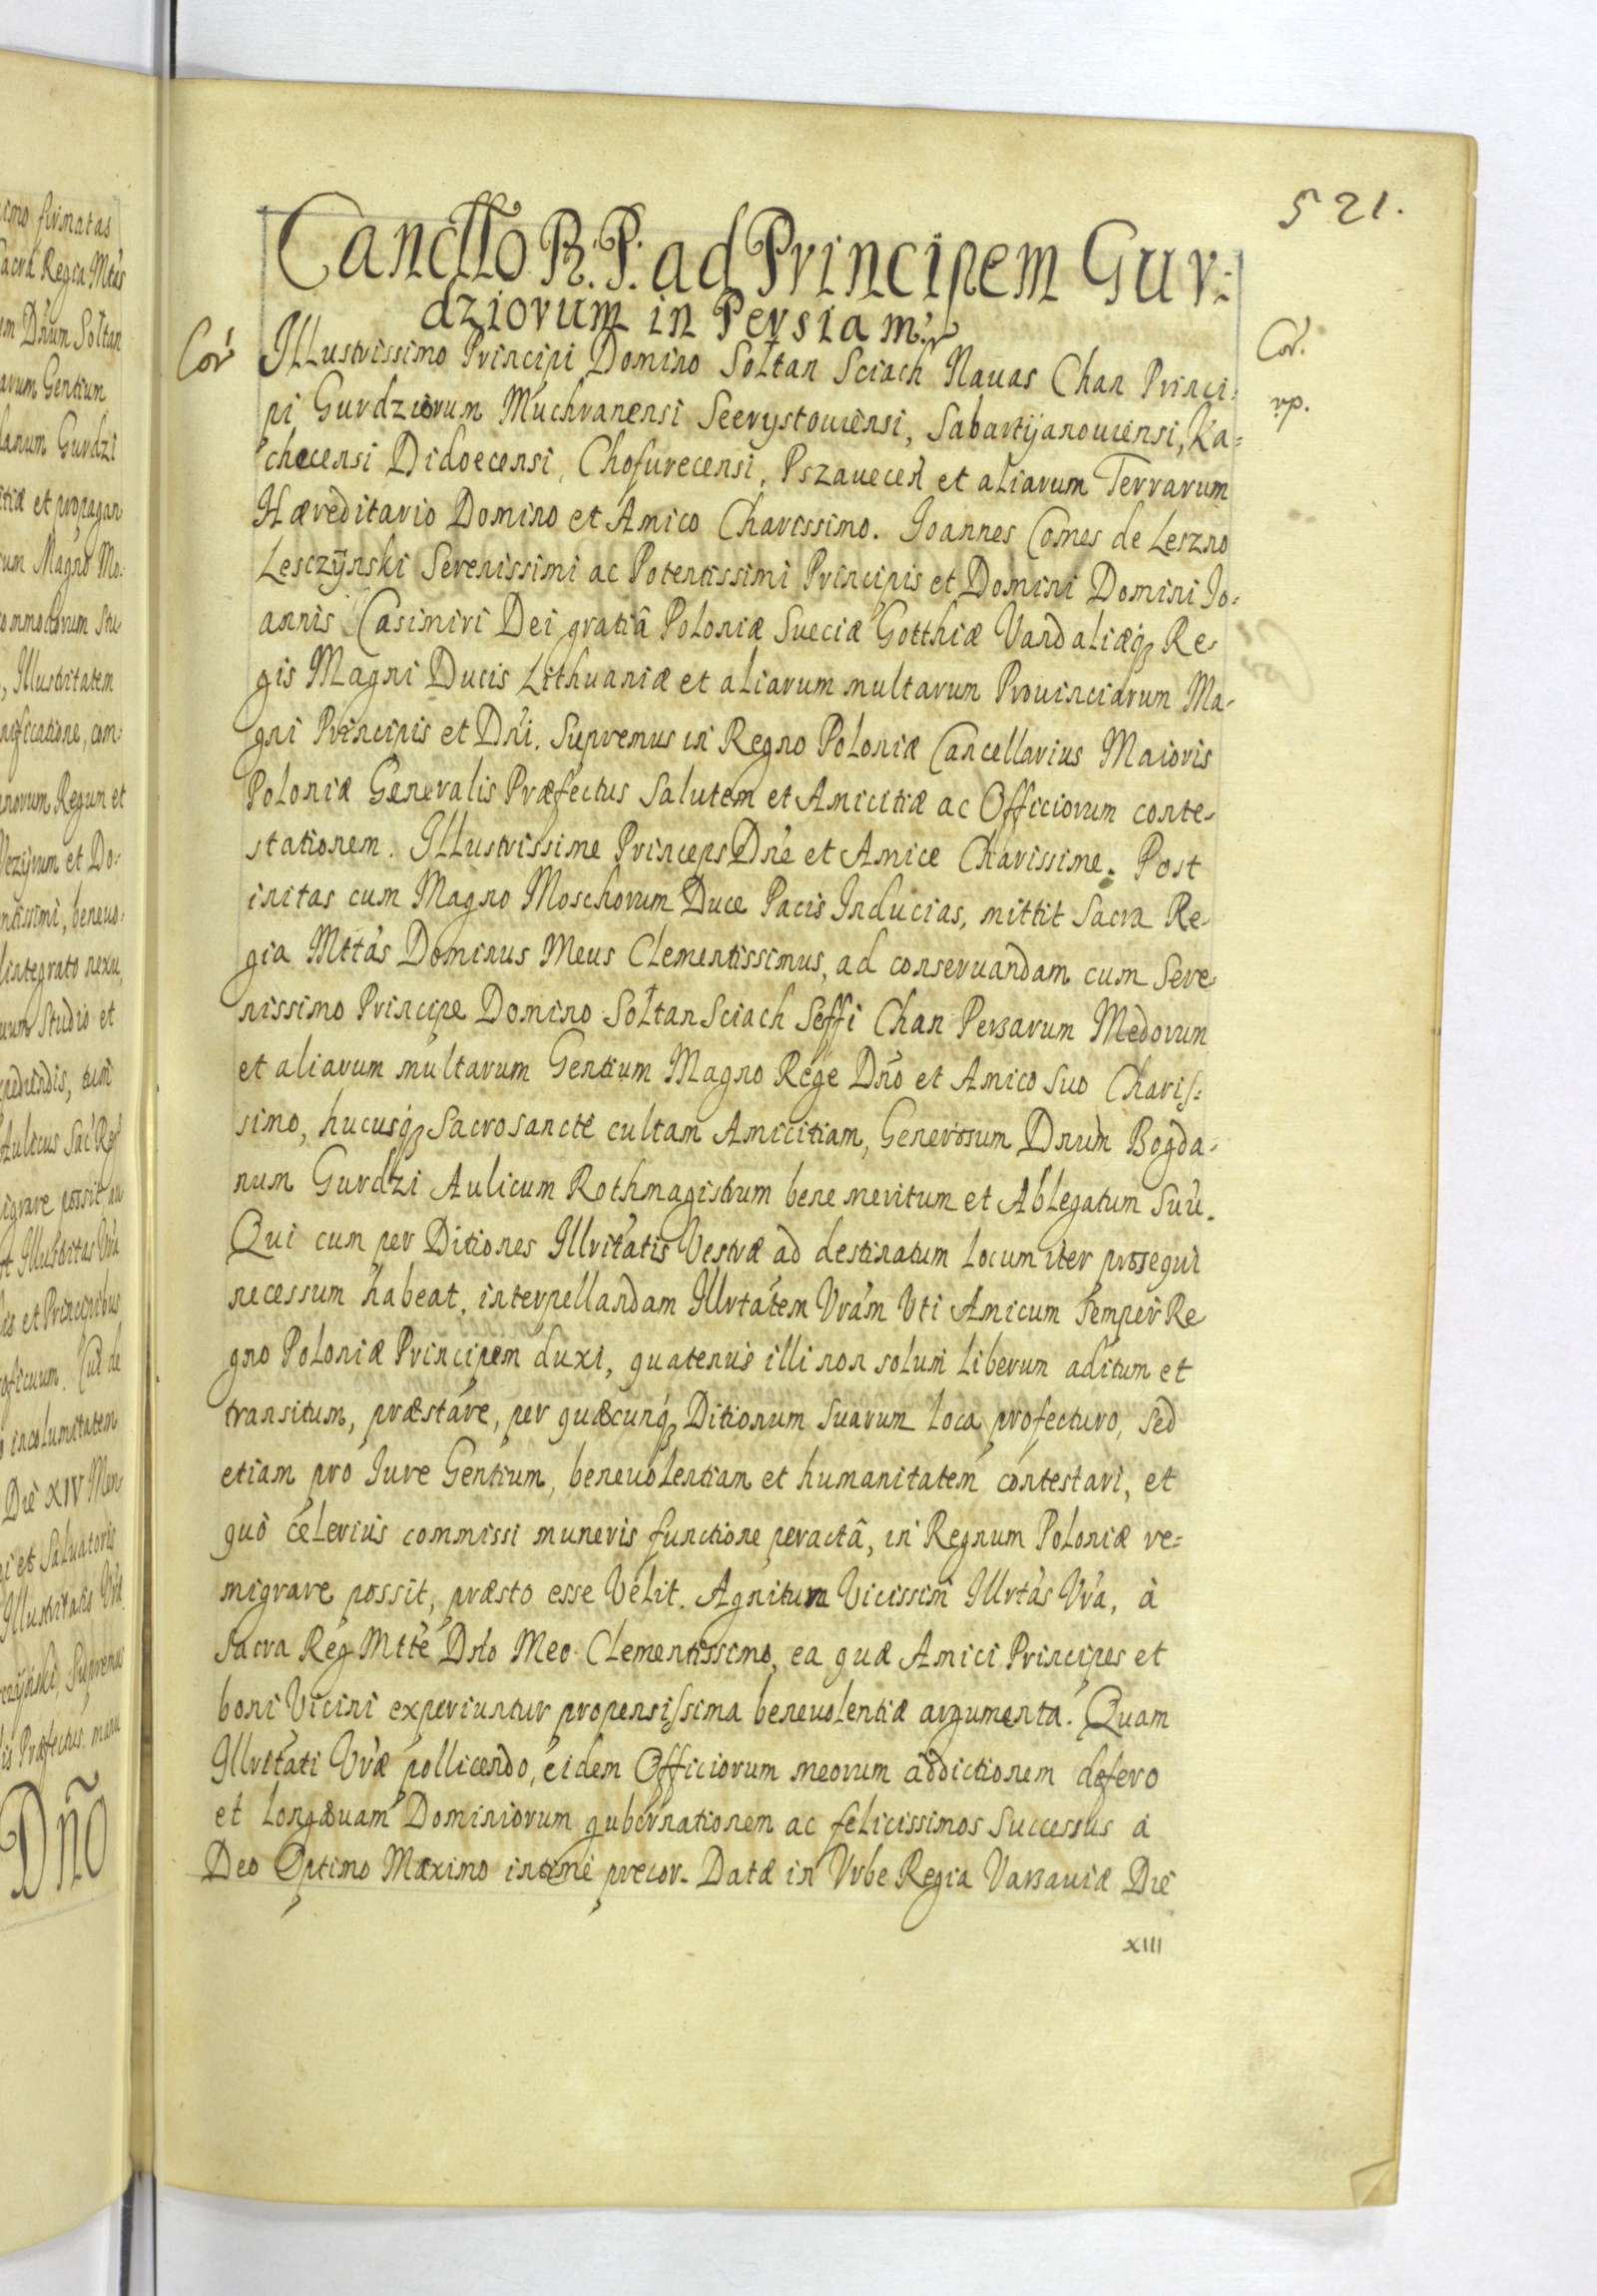 521.
Cancllo R. P. ad Principem Gur-
dziorum in Persiam.
Cor
Cor.
rp.
Illustrissimo Principi Domino Sołtan Sciach Nauas Chan Princi-
pi Gurdziorum Muchranensi Seerystouiensi, Sabartijanouiensi, Ka-
checensi Didoecensi, Chosurecensi, Pszauecen et aliarum Terrarum
Hæreditario Domino et Amico Charissimo. Joannes Comes de Leszno
Lesczÿnski Serenissimi ac Potentissimi Principis et Domini Domini Jo-
annis Casimiri Dei gratiâ Poloniæ Sueciæ Gotthiæ Vandaliæq Re-
gis Magni Ducis Lithuaniæ et aliarum multarum Prouinciarum Ma-
gni Principis et Dni. Supremus in Regno Poloniæ Cancellarius Maioris
Poloniæ Generalis Præfectus Salutem et Amicitiæ ac Officiorum conte-
stationem. Illustrissime Princeps Dne et Amice Charissime. Post
initas cum Magno Moschorum Duce Pacis Inducias, mittit Sacra Re-
gia Mttas Dominus Meus Clementissimus, ad conseruandam cum Sere-
nissimo Principe Domino Sołtan Sciach Seffi Chan Persarum Medorum
et aliarum multarum Gentium Magno Rege Dno et Amico Suo Charis-
simo, hucusq Sacrosancte cultam Amicitiam, Generosum Dnum Bogda-
num Gurdzi Aulicum Rothmagistrum bene meritum et Ablegatum Suu.
Qui cum per Ditiones Illritatis Vestræ ad destinatum Locum iter prosegui
necessum habeat, interpellandam Illrtatem Vram Vti Amicum semper Re
gno Poloniæ Principem duxi, quatenus illi non solum Liberum aditum et
transitum, præstare, per quæcunq Ditionum suarum Loca profecturo, sed
etiam pro Jure Gentium, beneuolentiam et humanitatem contestari, et
quò celerius commissi muneris functione peractâ, in Regnum Poloniæ re-
migrare possit, præsto esse Velit. Agnitura Vicissim Illrtas Vra, à
Sacra Reg Mtte Dno Meo Clementissimo, ea quæ Amici Principes et
boni Vicini experiuntur propensissima beneuolentiæ argumenta. Quam
Illritati Vræ pollicendo, eidem Officiorum meorum addictionem defero
et Longæuam Dominiorum gubernationem ac felicissimos Successus à
Deo Optimo Maximo intimè precor. Datæ in Vrbe Regia Varsauiæ Die
XIII